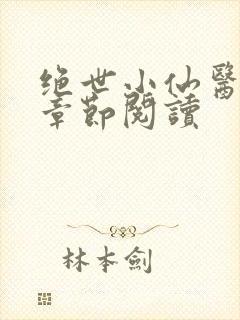 绝世小仙醫
章節閱讀
林本劍